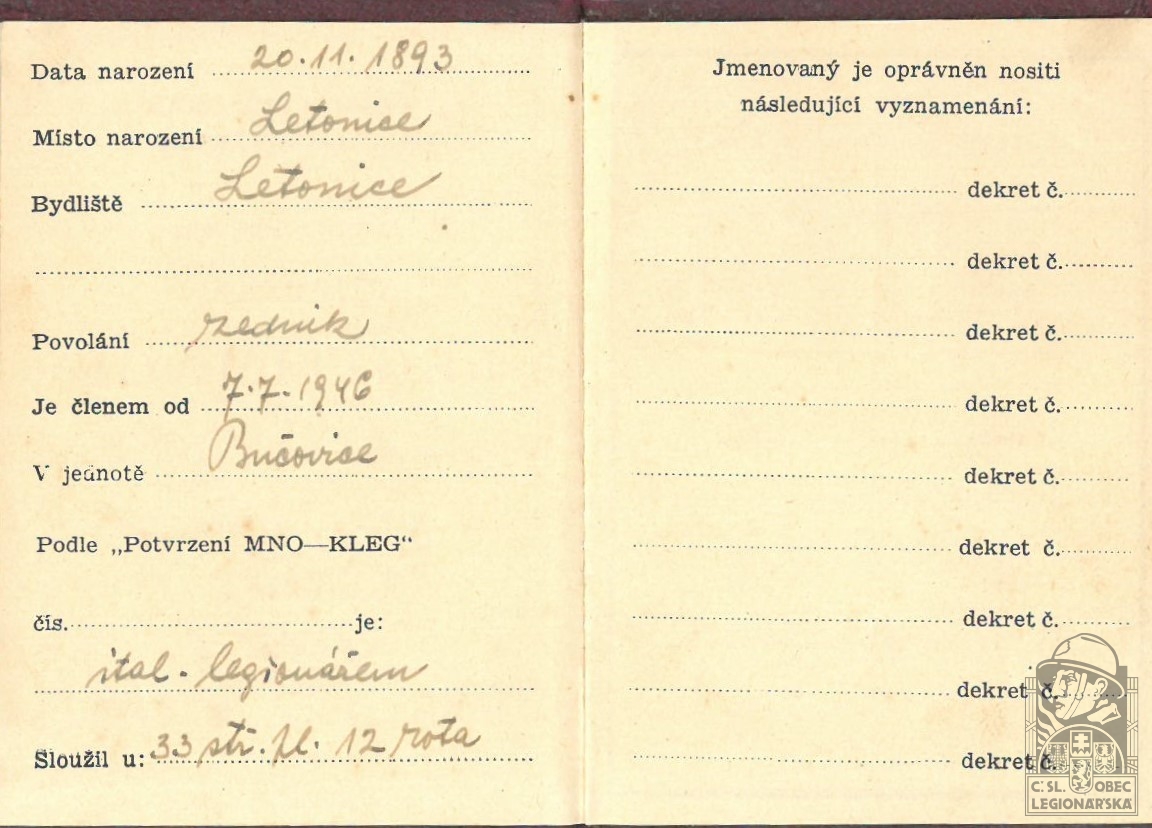 Data narození 20.11.1893
Místo narození Letonice
Bydliště Letonice
Povolání zedník
Je členem od 7.7.1946
V jednotě Bučovice
Podle „Potvrzení MNO—KLEG“
čís. je:
ital. legionářem
Sloužil u: 33 stř. pl. 12 rota
Jmenovaný je oprávněn nositi
následující vyznamenání:
dekret č.
dekret č.
dekret č.
dekret č.
dekret č.
dekret č.
dekret č.
dekret č.
dekret č.
Č. SL. OBEC
LEGIONÁŘSKÁ